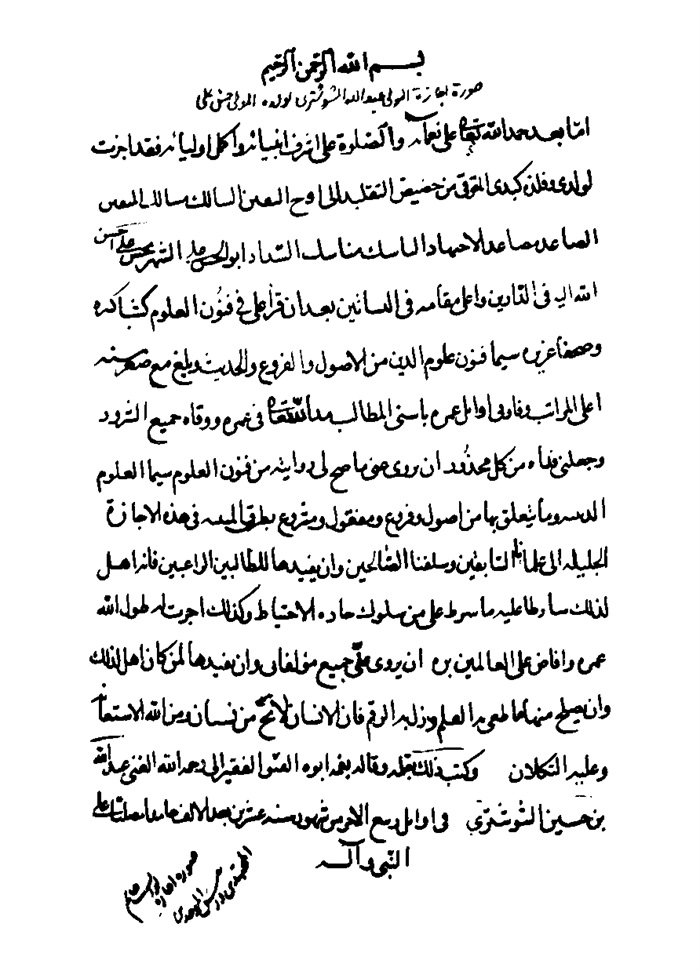 بسم الله الرحمن الرحيم
صورة اجازة المولى عبدالله الشوشترى لولده المولى حسن على
اما بعد حمد الله تعالى على نعمائه والصلوة على اشرف انبيائه واكمل اوليائه فقد اجزت
لولدى وفلذة كبدى المترقى من حضيض التقليد الى اوج اليقين السالك مسالك المتقين
الصاعد مصاعد الاجتهاد الناسك مناسك السداد ابو الحسن على الشهير بحسن على احسن
الله اليه فى الدارين واعلى مقامه فى النشأتين بعد ان قرأ على فى فنون العلوم كتبا كثيرة
وصحفا عزيزة سيما فنون علوم الدين من الاصول والفروع والحديث وبلغ مع صغر سنه
اعلى المراتب وفاز فى اوايل عمره باسنى المطالب مد الله تعالى فى عمره ووقاه جميع الشرور
وجعلنى فداه من كل محذور ان يروى عنى ما صح لى روايته من فنون العلوم سيما العلوم
الدينية وما يتعلق بها من اصول وفروع ومعقول ومشروع بطرقى المبينة فى هذه الاجازة
الجليلة الى علمائنا السابقين وسلفنا الصالحين وان يفيدها للطالبين الراغبين فانه اهل
لذلك شارطا عليه ما شرط على من سلوك جادة الاحتياط وكذلك اجزت له طول الله
عمره وافاض على العالمين بره ان يروى عنى جميع مؤلفاتى وان يفيدها لمن كان اهل لذلك
وان يصلح منها ما طغى به القلم وزل به الرقم فان الانسان لا ينج من نسيان ومن الله الاستعانة
وعليه التكلان وكتب ذلك بقلمه وقاله بفمه ابوه الفقير الى رحمة الله الغنى عبدالله
بن حسين الشوشترى فى اوايل ربيع الاخر من شهور سنه عشرين بعد الالف حامدا مصليا على
النبى وآله
صورة اجازة